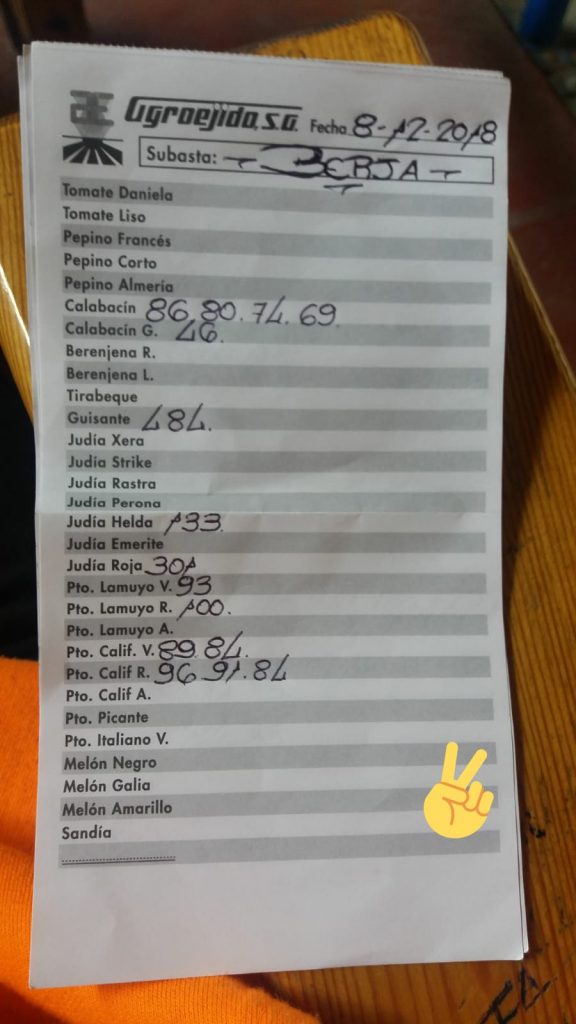 Agroejido, S.A. Fecha 8-12-2018
Subasta: - BERJA -
Tomate Daniela
Tomate Liso
Pepino Francés
Pepino Corto
Pepino Almería
Calabacín 86.80.74.69.
Calabacín G. 46.
Berenjena R.
Berenjena L.
Tirabeque
Guisante 484.
Judía Xera
Judía Strike
Judía Rastra
Judía Perona
Judía Helda 133.
Judía Emerite
Judía Roja 301
Pto. Lamuyo V. 93
Pto. Lamuyo R. 100.
Pto. Lamuyo A.
Pto. Calif. V. 89.84.
Pto. Calif R. 96.91.84
Pto. Calif A.
Pto. Picante
Pto. Italiano V.
Melón Negro
Melón Galia
Melón Amarillo
Sandía